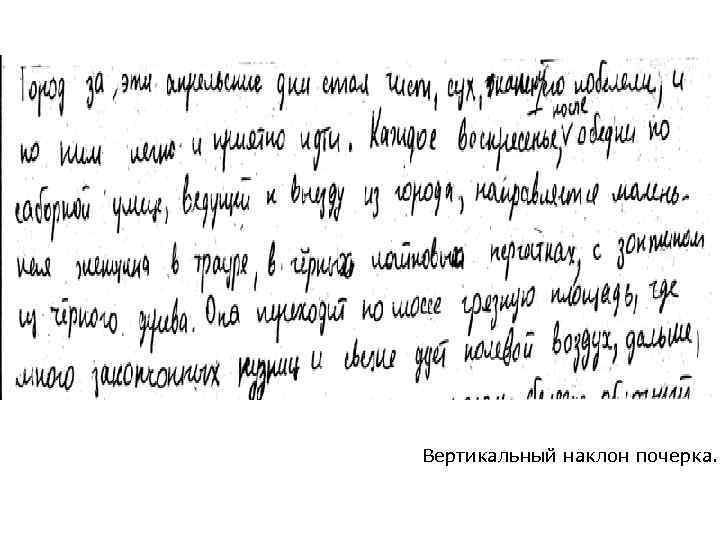 Город за, эти апрельские дни стал чист, сух, побелели, и
после
по ним легко и приятно идти. Каждое воскресенье, обедни по
саборной улице, ведущей к выезду из города, направляется малень-
кая женщина в трауре, в чёрных лайковых перчатках, с зонтиком
из чёрного дерева. Она переходит по шоссе грязную площадь, где
много закопчонных кузниц и свеже дует полевой воздух, дальше,
Вертикальный наклон почерка.